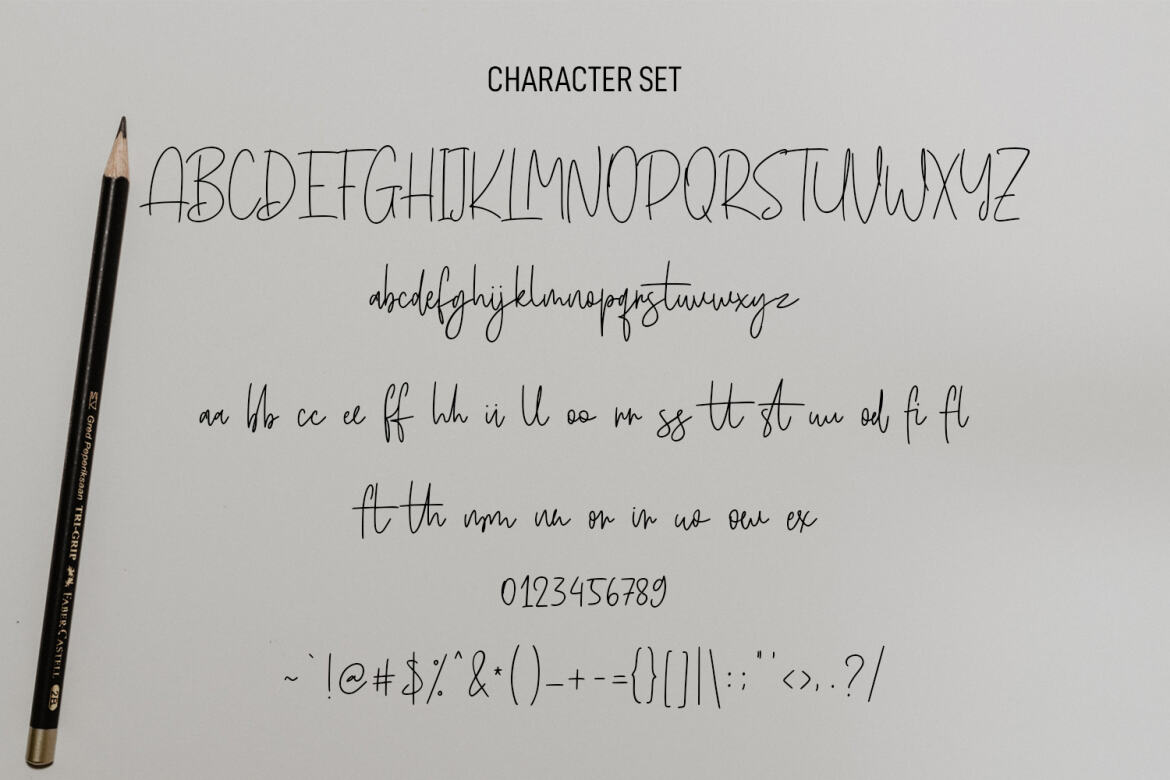 CHARACTER SET
ABCDEFGHIJKLMNOPQRSTUVWXYZ
abcdefghijklmnopqrstuvwxyz
aa bb cc ee ff hh ii ll oo rr ss tt st uu od fi fl
ft th on in ex
0123456789
~`!@#$%^&*()_+-={}[]|\:;"'<>,.?/
Gred Peperiksaan TRI-GRIP FABER-CASTELL 2B